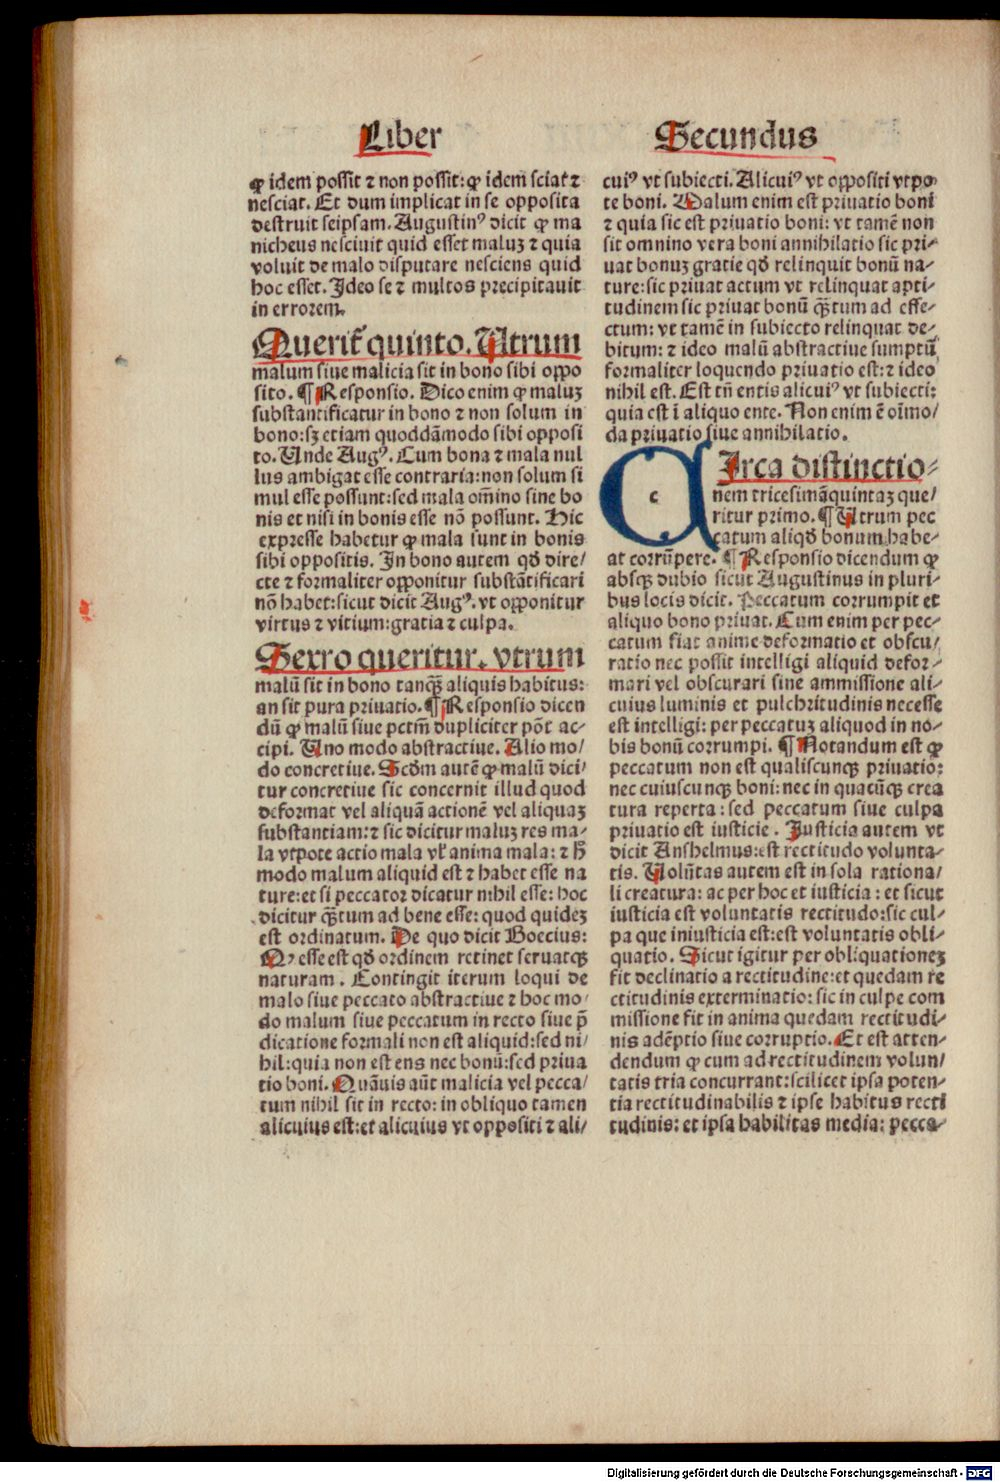 Liber Secundus
ꝙ idem possit ⁊ non possit: ꝙ idem sciat ⁊
nesciat. Et dum implicat in se opposita
destruit seipsam. Augustinꝰ dicit ꝙ ma
nicheus nesciuit quid esset maluꝫ ⁊ quia
voluit de malo disputare nesciens quid
hoc esset. Ideo se ⁊ multos precipitauit
in errorem.
Querit̃ quinto. Utrum
malum siue malicia sit in bono sibi oppo
sito. ¶ Responsio. Dico enim ꝙ maluꝫ
substantificatur in bono ⁊ non solum in
bono: sꝫ etiam quoddāmodo sibi opposi
to. Unde Augꝰ. Cum bona ⁊ mala nul
lus ambigat esse contraria: non solum si
mul esse possunt: sed mala om̄ino sine bo
nis et nisi in bonis esse nō possunt. Hic
expresse habetur ꝙ mala sunt in bonis
sibi oppositis. In bono autem qd̄ dire/
cte ⁊ formaliter opponitur substātificari
nō habet: sicut dicit Augꝰ. vt opponitur
virtus ⁊ vitium: gratia ⁊ culpa.
Sexto queritur. vtrum
malū sit in bono tanqꝫ aliquis habitus:
an sit pura priuatio. ¶ Responsio dicen
dū ꝙ malū siue pctm̄ dupliciter pōt ac-
cipi. Uno modo abstractiue. Alio mo/
do concretiue. Scd̄m autē ꝙ malū dici/
tur concretiue sic concernit illud quod
deformat vel aliquā actionē vel aliquaꝫ
substantiam: ⁊ sic dicitur maluꝫ res ma-
la vtpote actio mala vl̓ anima mala: ⁊ h̄
modo malum aliquid est ⁊ habet esse na
ture: et si peccator dicatur nihil esse: hoc
dicitur qꝫtum ad bene esse: quod quideꝫ
est ordinatum. De quo dicit Boecius:
Qꝫ esse est qd̄ ordinem retinet seruatqꝫ
naturam. Contingit iterum loqui de
malo siue peccato abstractiue ⁊ hoc mo/
do malum siue peccatum in recto siue p̄
dicatione formali non est aliquid: sed ni/
hil: quia non est ens nec bonū: sed priua
tio boni. Quāuis aūt malicia vel pecca/
tum nihil sit in recto: in obliquo tamen
alicuius est: et alicuius vt oppositi ⁊ ali/
cuiꝰ vt subiecti. Alicuiꝰ vt oppositi vtpo
te boni. Malum enim est priuatio boni
⁊ quia sic est priuatio boni: vt tamē non
sit omnino vera boni annihilatio sic pri-
uat bonuꝫ gratie qd̄ relinquit bonū na-
ture: sic priuat actum vt relinquat apti-
tudinem sic priuat bonū qꝫtum ad effe-
ctum: vt tamē in subiecto relinquat de-
bitum: ⁊ ideo malū abstractiue sumptū
formaliter loquendo priuatio est: ⁊ ideo
nihil est. Est tn̄ entis alicuiꝰ vt subiecti:
quia est ī aliquo ente. Non enim ē oīmo/
da priuatio siue annihilatio.
CIrca distinctio-
nem tricesimāquintaꝫ que/
ritur primo. ¶ Utrum pec
catum aliqd̄ bonum habe-
at corrūpere. ¶ Responsio dicendum ꝙ
absqꝫ dubio sicut Augustinus in pluri-
bus locis dicit. Peccatum corrumpit et
aliquo bono priuat. Cum enim per pec-
catum fiat anime deformatio et obscu/
ratio nec possit intelligi aliquid defor-
mari vel obscurari sine ammissione ali-
cuius luminis et pulchritudinis necesse
est intelligi: per peccatuꝫ aliquod in no-
bis bonū corrumpi. ¶ Notandum est ꝙ
peccatum non est qualiscunqꝫ priuatio:
nec cuiuscunqꝫ boni: nec in quacūqꝫ crea
tura reperta: sed peccatum siue culpa
priuatio est iusticie. Iusticia autem vt
dicit Anshelmus: est rectitudo volunta-
tis. Volūtas autem est in sola rationa/
li creatura: ac per hoc et iusticia: et sicut
iusticia est voluntatis rectitudo: sic cul-
pa que iniusticia est: est voluntatis obli-
quatio. Sicut igitur per obliquationeꝫ
fit declinatio a rectitudine: et quedam re
ctitudinis exterminatio: sic in culpe com
missione fit in anima quedam rectitudi-
nis adēptio siue corruptio. Et est atten-
dendum ꝙ cum ad rectitudinem volun/
tatis tria concurrant: scilicet ipsa poten-
tia rectitudinabilis ⁊ ipse habitus recti
tudinis: et ipsa habilitas media: pecca-
Digitalisierung gefördert durch die Deutsche Forschungsgemeinschaft - DFG